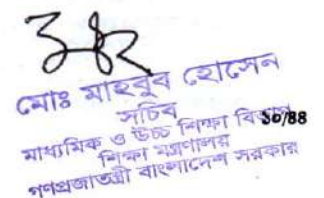 মোঃ মাহবুব হোসেন
সচিব
মাধ্যমিক ও উচ্চ শিক্ষা বিভাগ
১০/৪৪
শিক্ষা মন্ত্রণালয়
গণপ্রজাতন্ত্রী বাংলাদেশ সরকার